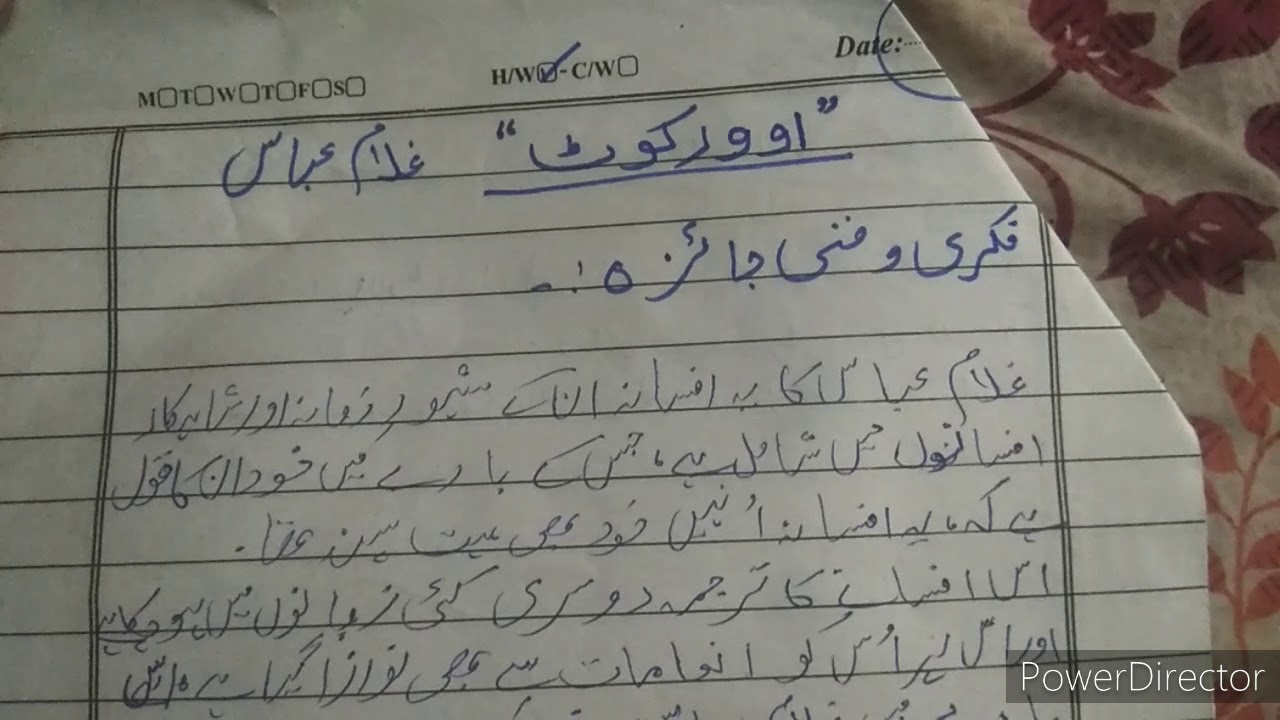 M T W T F S H/W - C/W Date:
”اوورکوٹ“ غلام عباس
فکری و فنی جائزہ :-
غلام عباس کا یہ افسانہ ان کے مشہور زمانہ اور شاہکار
افسانوں میں شامل ہے، جس کے بارے میں خود ان کا قول
ہے کہ، یہ افسانہ اُنہیں خود بھی بہت پسند تھا۔
اس افسانے کا ترجمہ دوسری کئی زبانوں میں ہو چکا ہے
اور اس پر اُس کو انعامات سے بھی نوازا گیا ہے، اس
PowerDirector